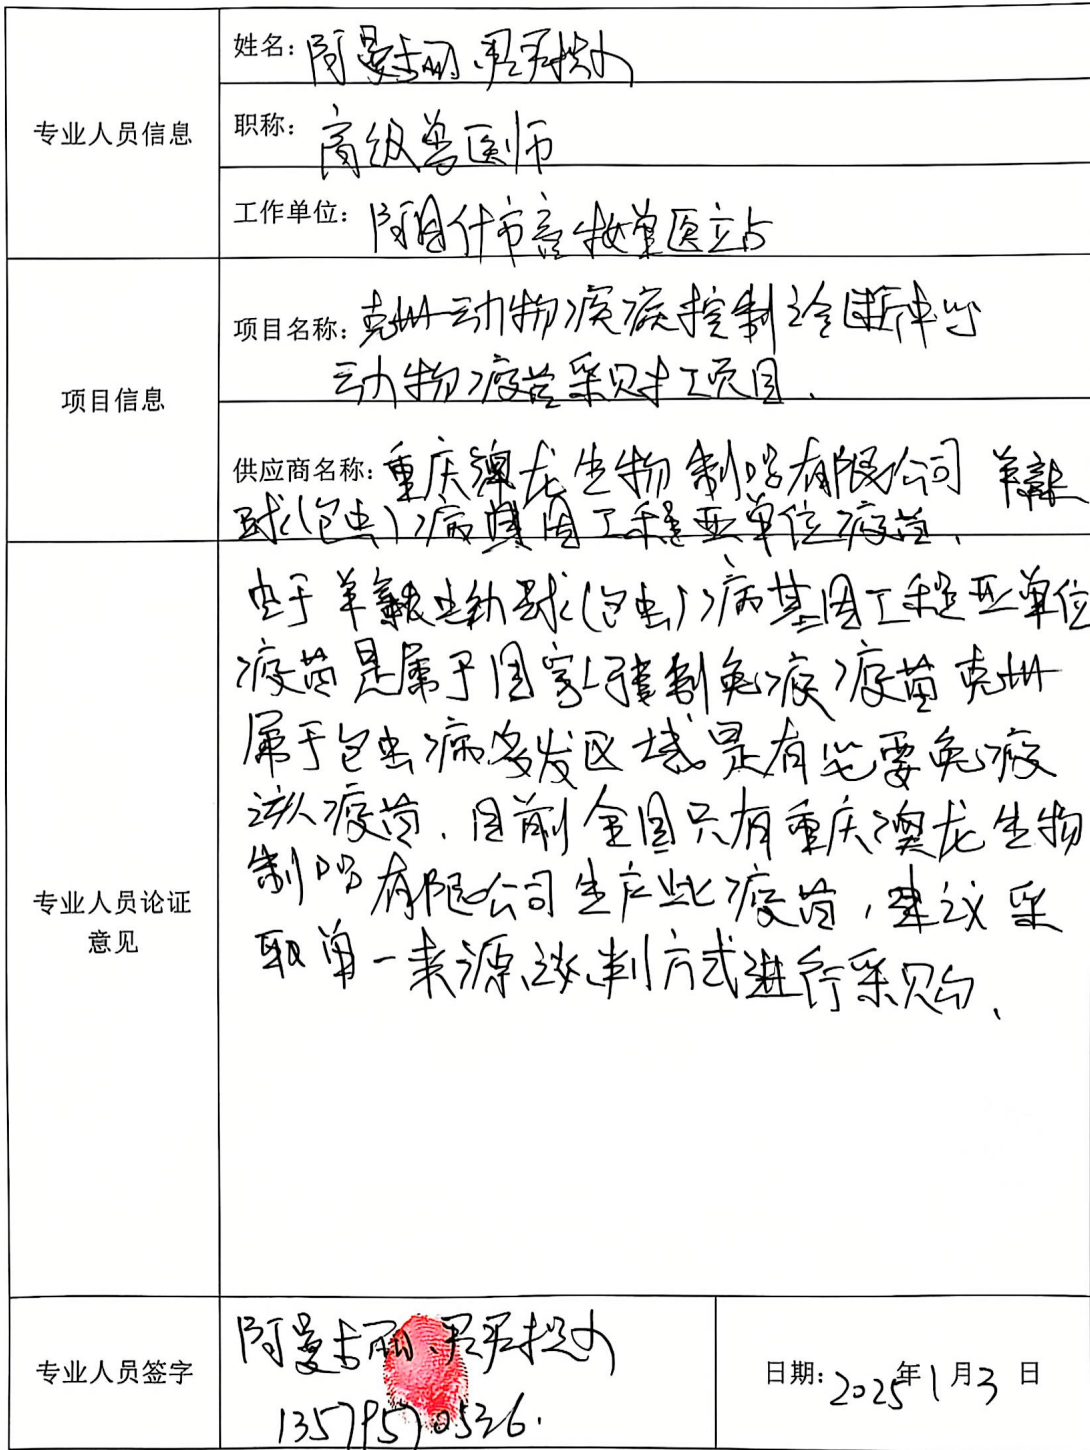 专业人员信息
姓名：阿曼古丽、
职称：高级兽医师
工作单位：阿图什市畜牧兽医站
项目信息
项目名称：克州动物疾病控制诊断中心
动物疫苗采购项目、
供应商名称：重庆澳龙生物制品有限公司 羊棘
球(包虫)病基因工程亚单位疫苗、
专业人员论证
意见
由于羊棘球蚴(包虫)病基因工程亚单位
疫苗是属于国家强制免疫疫苗克州
属于包虫病多发区域是有必要免疫
该疫苗、目前全国只有重庆澳龙生物
制品有限公司生产此疫苗，建议采
取单一来源谈判方式进行采购、
专业人员签字
阿曼古丽、
13579570526.
日期：2025年1月3日